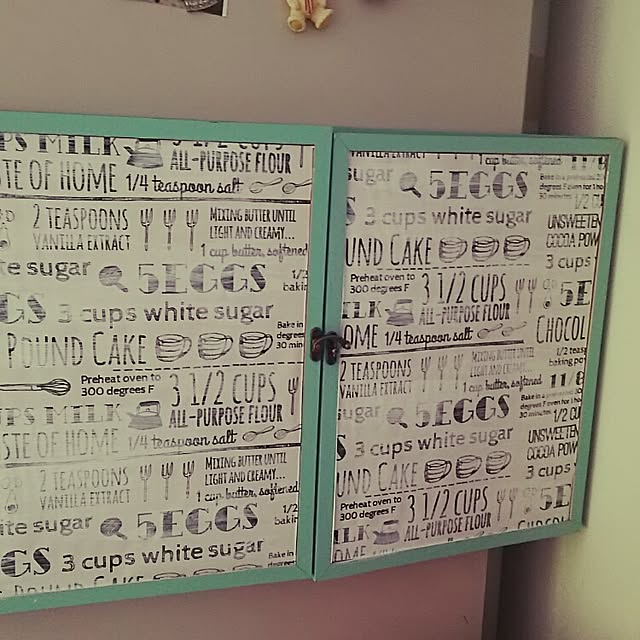 PS MILK
3 1/2 CUPS
ALL-PURPOSE FLOUR
TE OF HOME
1/4 teaspoon salt
2 TEASPOONS
VANILLA EXTRACT
MIXING BUTTER UNTIL
LIGHT AND CREAMY...
1 cup butter, softened
te sugar
5 EGGS
1/3
bakin
GS
3 cups white sugar
POUND CAKE
Bake in
degrees
30 min
Preheat oven to
300 degrees F
3 1/2 CUPS
ALL-PURPOSE FLOUR
PS MILK
STE OF HOME
1/4 teaspoon salt
2 TEASPOONS
VANILLA EXTRACT
MIXING BUTTER UNTIL
LIGHT AND CREAMY...
1 cup butter, softened
ite sugar
5 EGGS
1/2
bakin
GS
3 cups white sugar
POUND CAKE
Bake in
VANILLA EXTRACT
1 cup butter, softened
sugar
5 EGGS
11/8
1/2 CU
3 cups white sugar
UNSWEETEN
COCOA POW
UND CAKE
3 cups
Preheat oven to
300 degrees F
3 1/2 CUPS
ALL-PURPOSE FLOUR
5E
ILK
OME
1/4 teaspoon salt
CHOCOL
2 TEASPOONS
VANILLA EXTRACT
MIXING BUTTER UNTIL
LIGHT AND CREAMY...
1 cup butter, softened
1/2 teasp
baking po
sugar
5 EGGS
11/8
1/2 CU
3 cups white sugar
UNSWEETEN
COCOA POW
UND CAKE
3 cups
Preheat oven to
300 degrees F
3 1/2 CUPS
ALL-PURPOSE FLOUR
5E
OME
1/4 teaspoon salt
CHOCOL